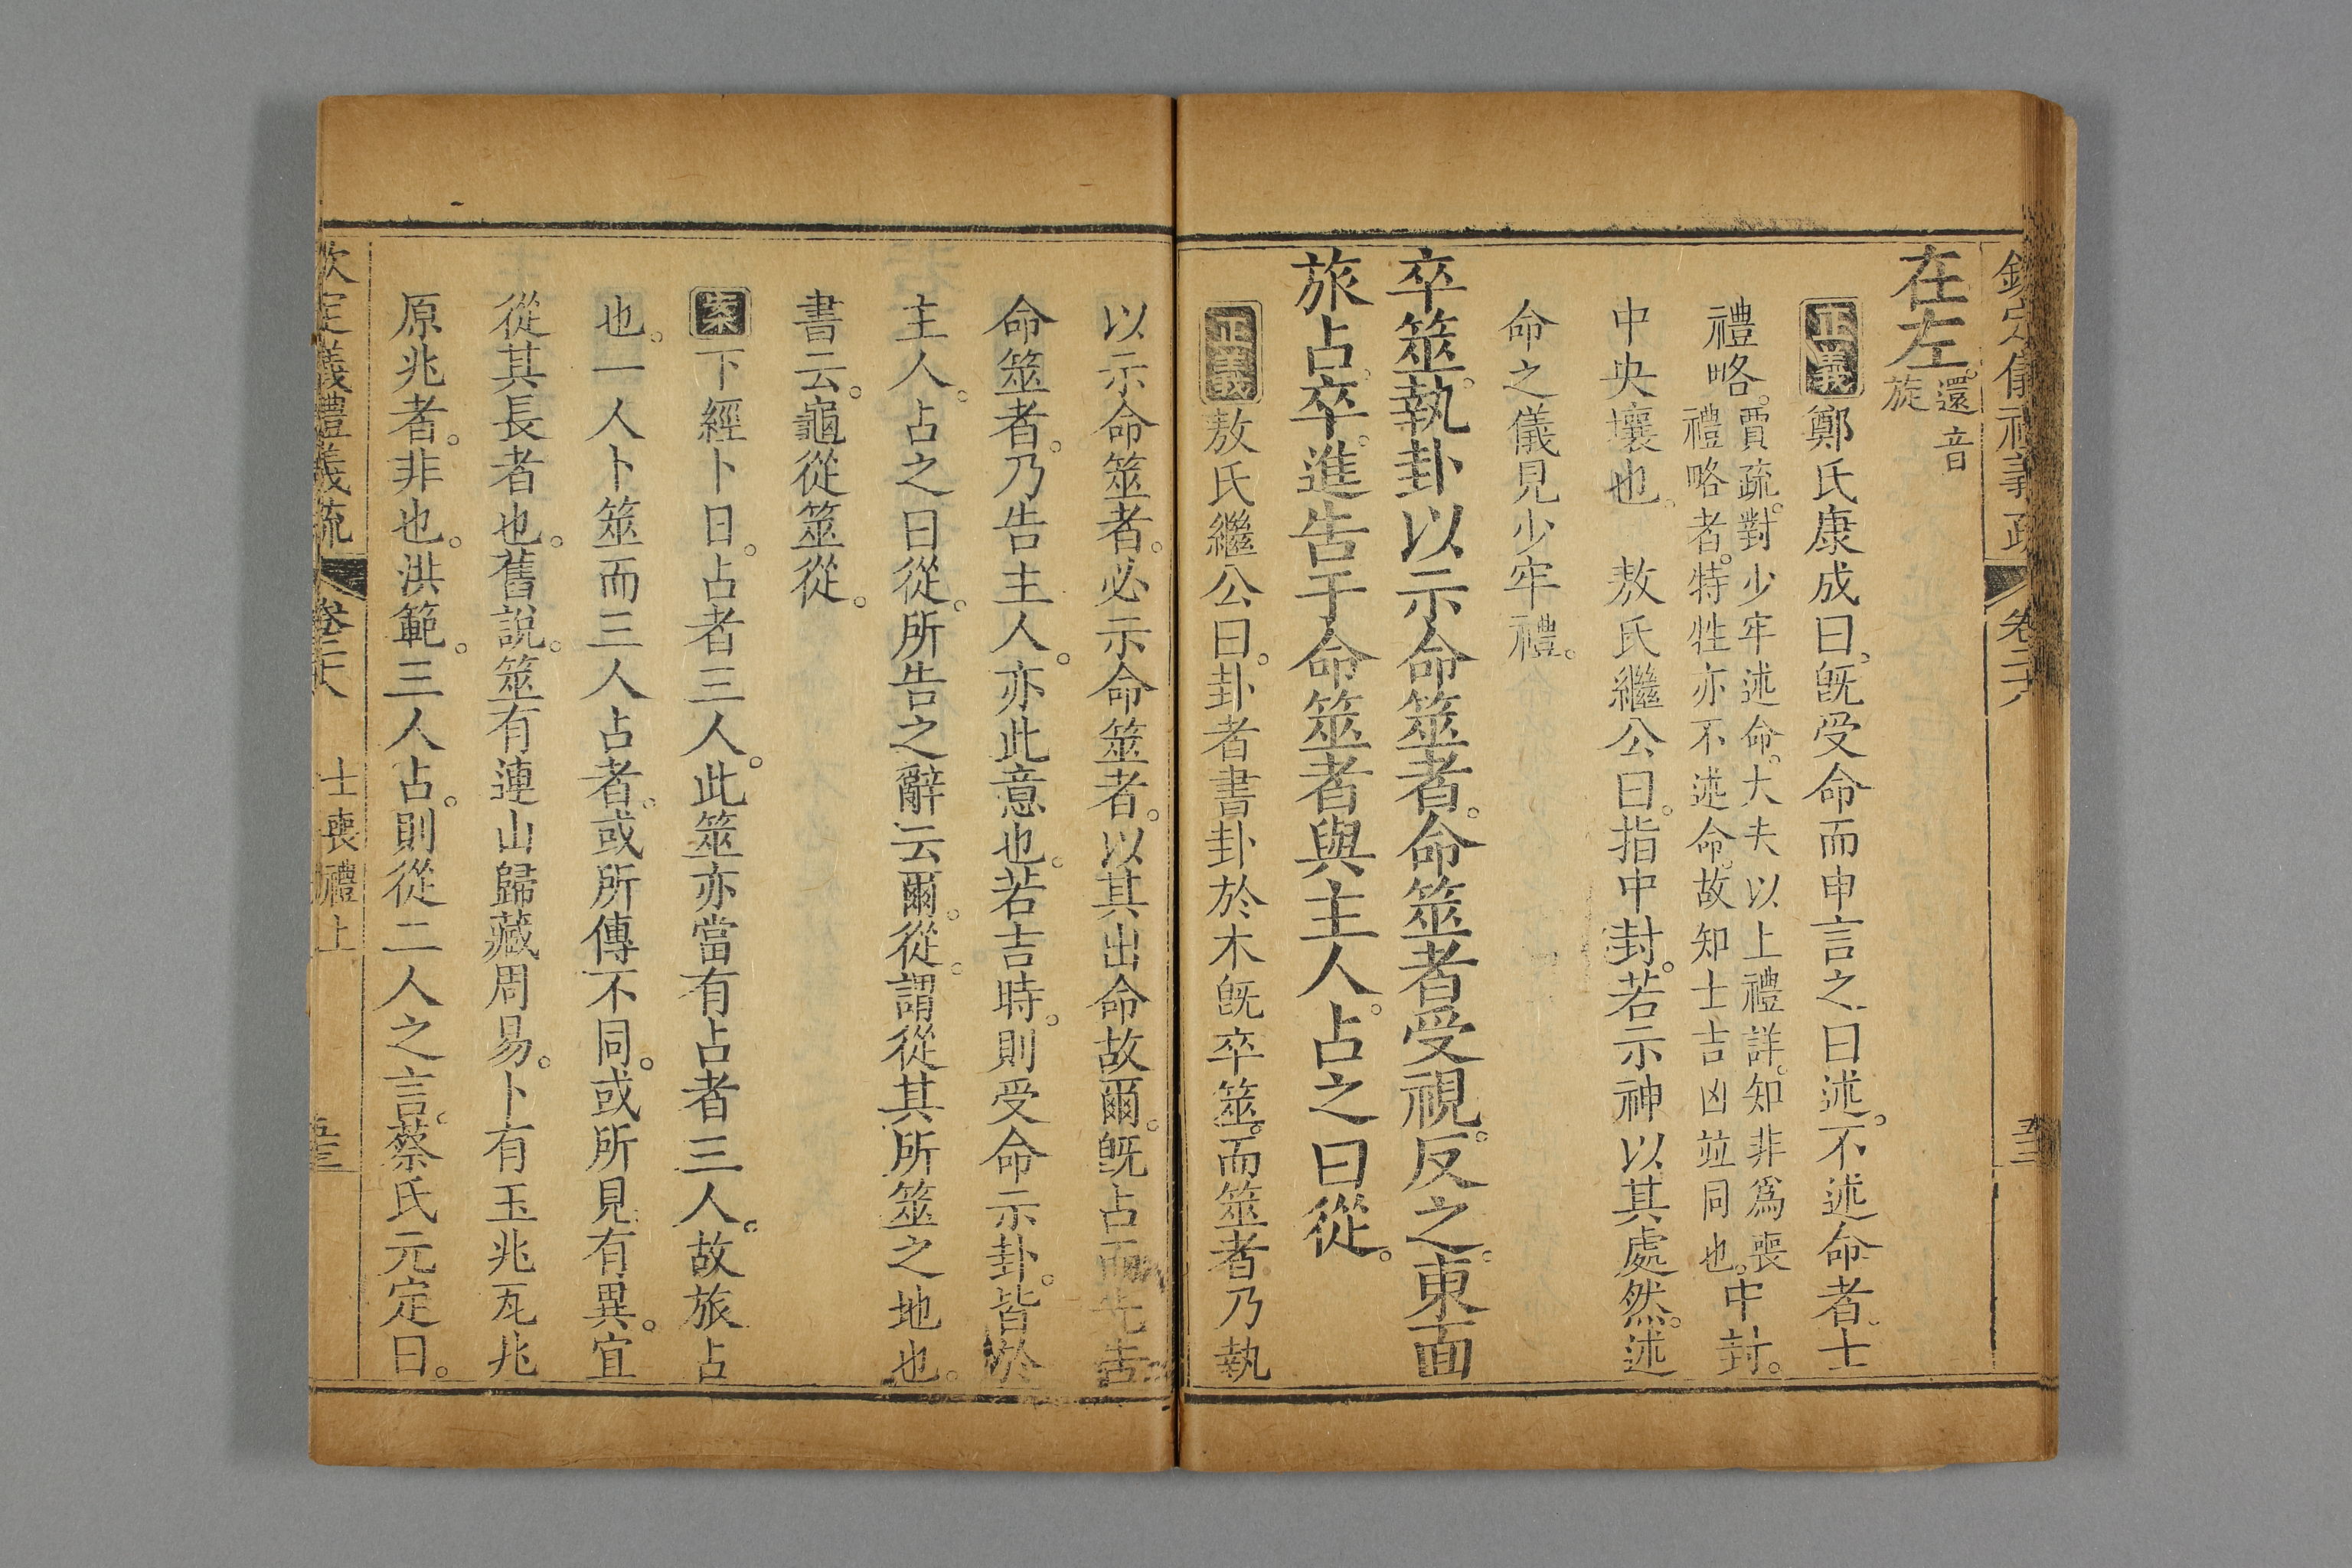 欽定儀禮義疏 卷二十八 五十二
在左。還音旋
正義 鄭氏康成曰。既受命而申言之曰述。不述命者。士
禮略。賈疏。對少牢述命。大夫以上禮詳。知非爲喪禮略者。特牲亦不述命。故知士吉凶竝同也。中封。
中央壤也。 敖氏繼公曰。指中封。若示神以其處然。述
命之儀見少牢禮。
卒筮。執卦以示命筮者。命筮者受視。反之。東面
旅占。卒。進告于命筮者與主人。占之曰從。
正義 敖氏繼公曰。卦者書卦於木旣卒筮。而筮者乃執
以示命筮者。必示命筮者。以其出命故爾。旣占而先告
命筮者。乃告主人。亦此意也。若吉時。則受命示卦。皆於
主人。占之曰從。所告之辭云爾。從。謂從其所筮之地也。
書云。龜從筮從。
案 下經卜日。占者三人。此筮亦當有占者三人。故旅占
也。一人卜筮而三人占者。或所傳不同。或所見有異。宜
從其長者也。舊說。筮有連山歸藏周易。卜有玉兆瓦兆
原兆者。非也。洪範。三人占。則從二人之言。蔡氏元定曰。
欽定儀禮義疏 卷二十八 士喪禮上 五十三